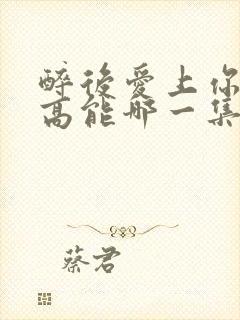 醉後愛上你
高能哪一集
蔡君